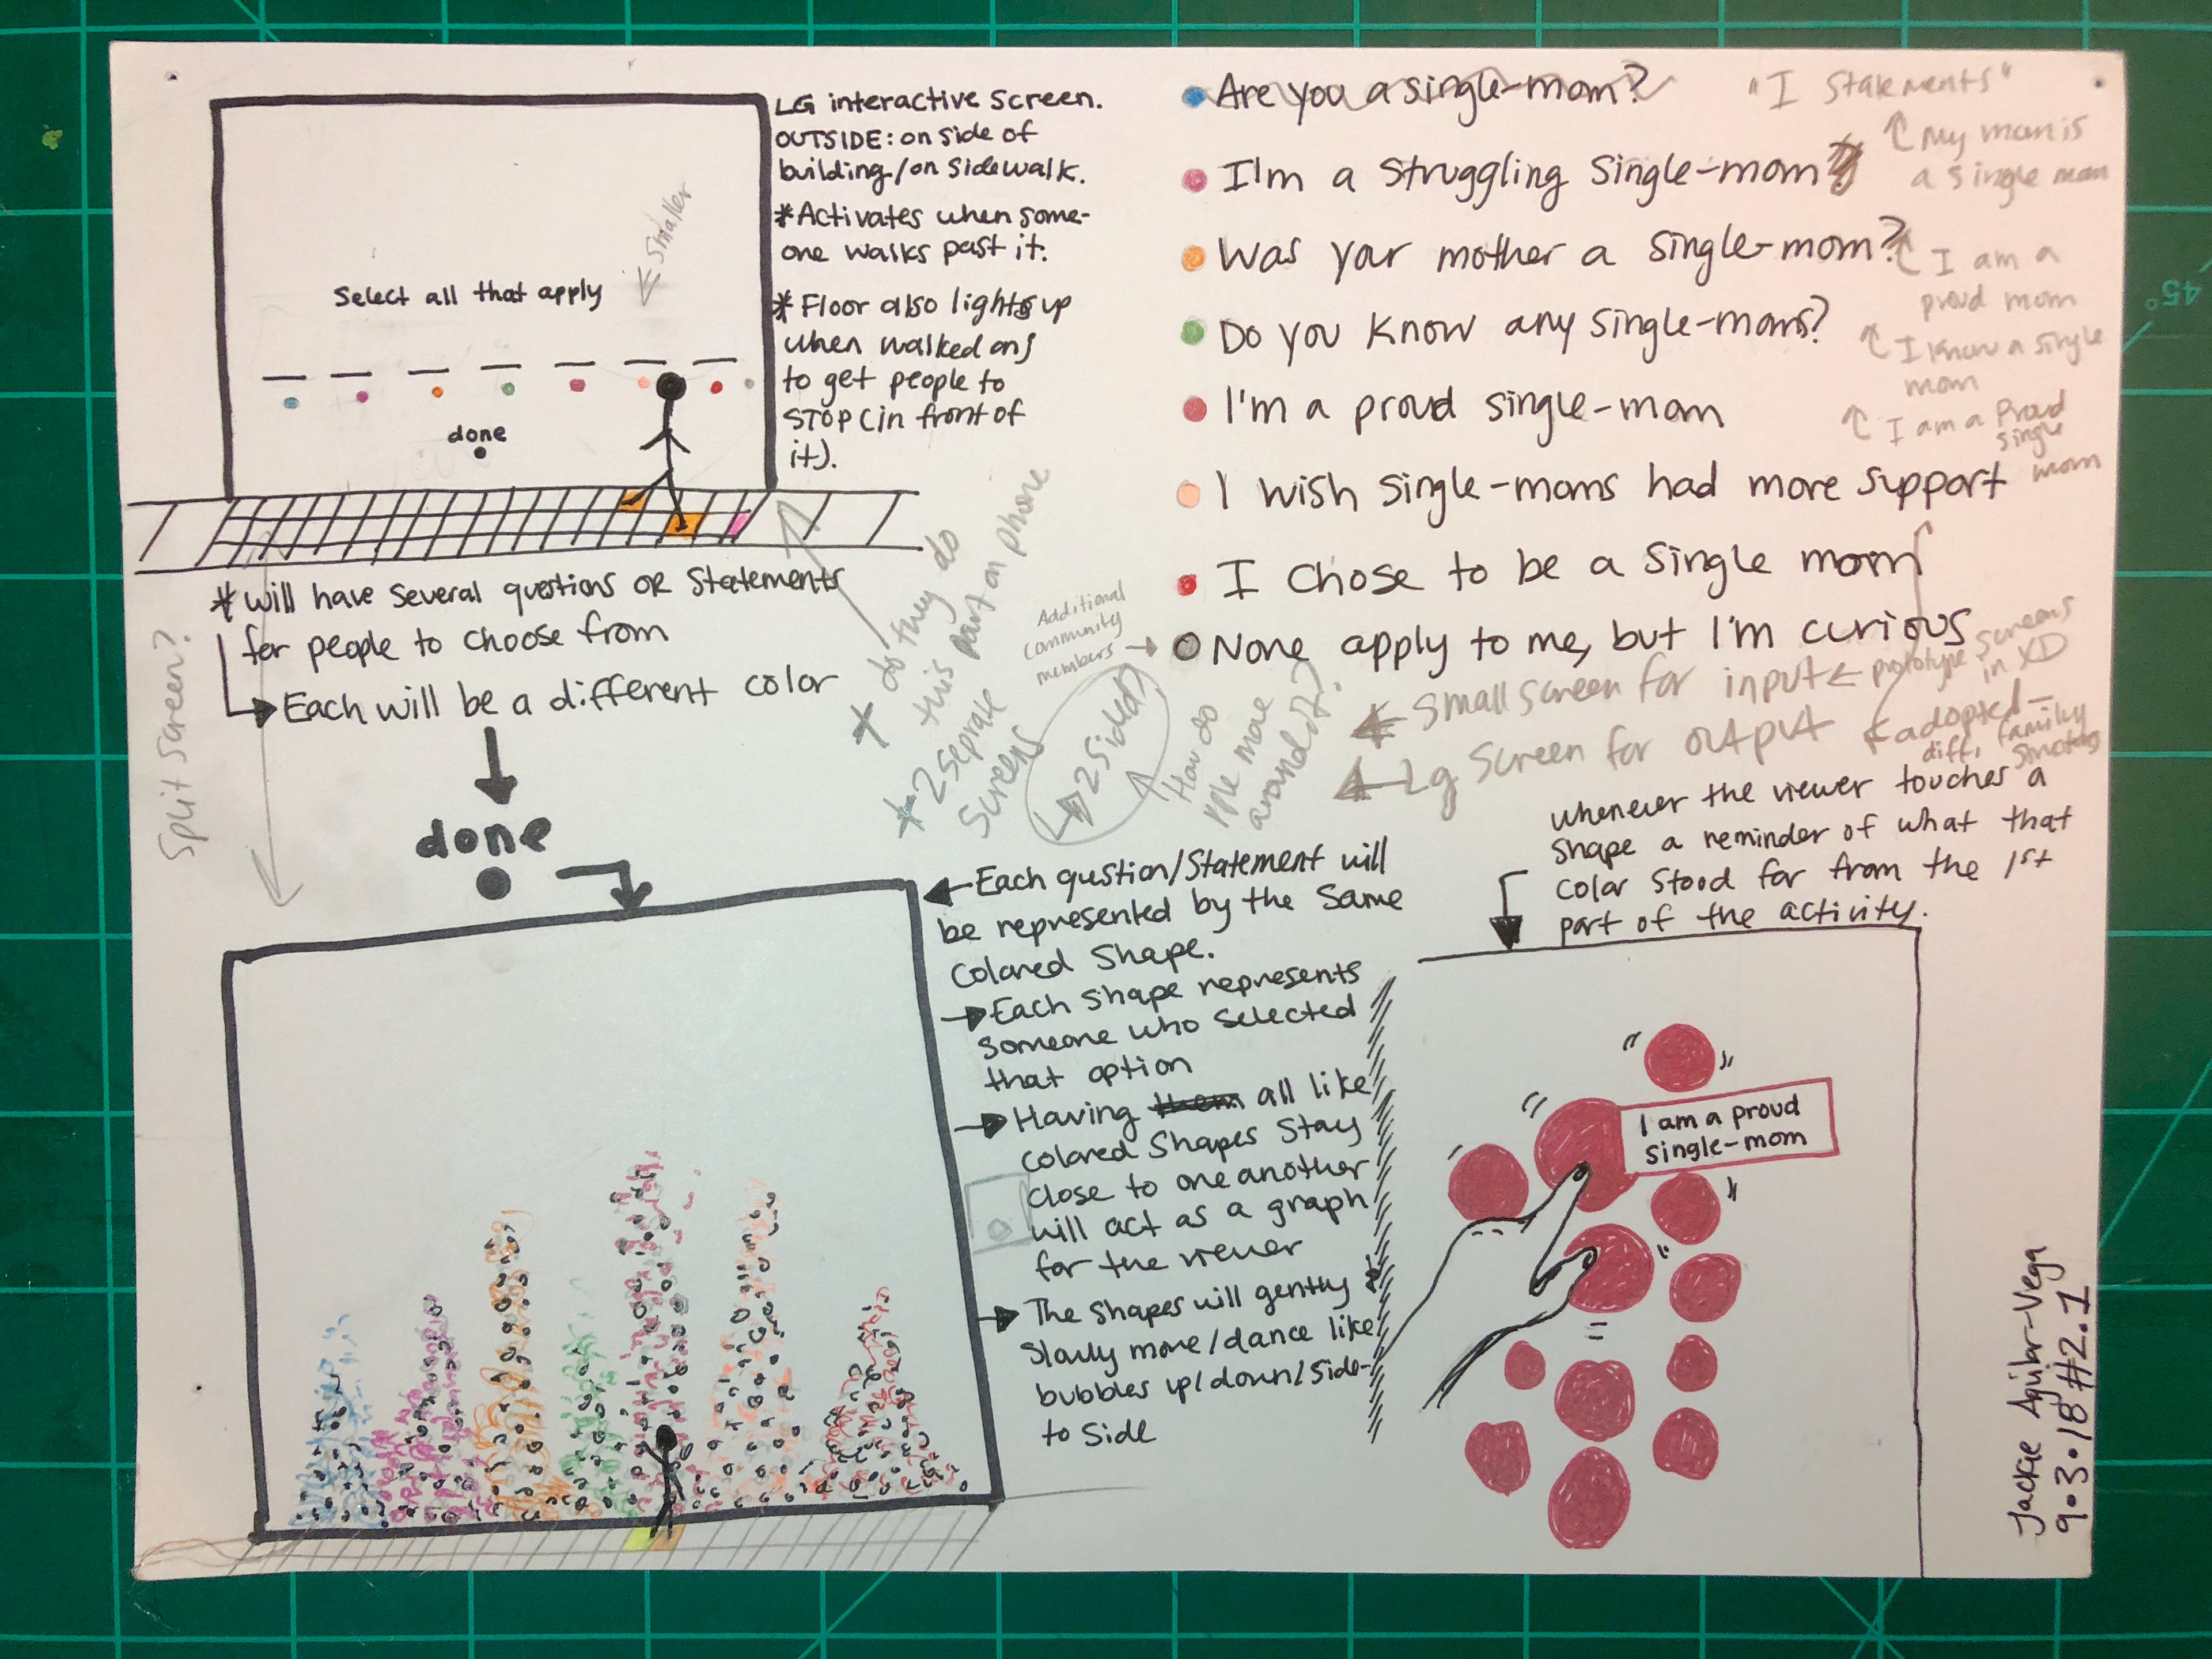 LG interactive screen.
OUTSIDE: on side of
building/on sidewalk.
*Activates when some-
one walks past it.
* Floor also lights up
when walked on,
to get people to
STOP (in front of
it).
<< smaller
Select all that apply
done
* will have several questions OR statements
for people to choose from
Each will be a different color
Split Screen?
done
* do they do
this part on phone
* 2 seprate
screens
2 sided?
How do
ppl move
around it?
Additional
community
members
Are you a single-mom?
I'm a struggling single-mom?
Was your mother a single-mom?
Do you know any single-moms?
I'm a proud single-mom
I wish single-moms had more support
I chose to be a single mom
None apply to me, but I'm curious
"I Statements"
My mom is
a single mom
I am a
proud mom
I know a single
mom
I am a Proud
single
mom
small screen for input
prototype screens
in XD
Lg screen for output
adopted -
diff. family
Each qustion/statement will
be represented by the same
colored shape.
Each shape represents
someone who selected
that option
Having them all like
colored shapes stay
close to one another
will act as a graph
for the viewer
The shapes will gently
slowly move/dance like
bubbles up/down/side-
to side
whenever the viewer touches a
shape a reminder of what that
color stood for from the 1st
part of the activity.
I am a proud
single-mom
Jackie Aguilar-Vega
9.3.18 #2.1
45°